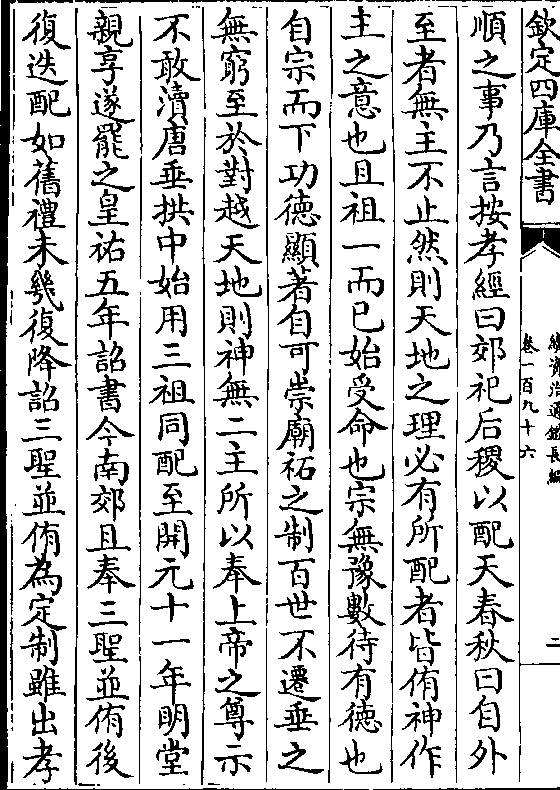 欽定四庫全書
續資治通鑑長編
卷一百九十六
二
順之事乃言按孝經曰郊祀后稷以配天春秋曰自外
至者無主不止然則天地之理必有所配者皆侑神作
主之意也且祖一而已始受命也宗無豫數待有德也
自宗而下功徳顯著自可崇廟祏之制百世不遷垂之
無窮至於對越天地則神無二主所以奉上帝之尊示
不敢瀆唐垂拱中始用三祖同配至開元十一年明堂
親享遂罷之皇祐五年詔書今南郊且奉三聖並侑後
復迭配如舊禮未幾復降詔三聖並侑為定制雖出孝